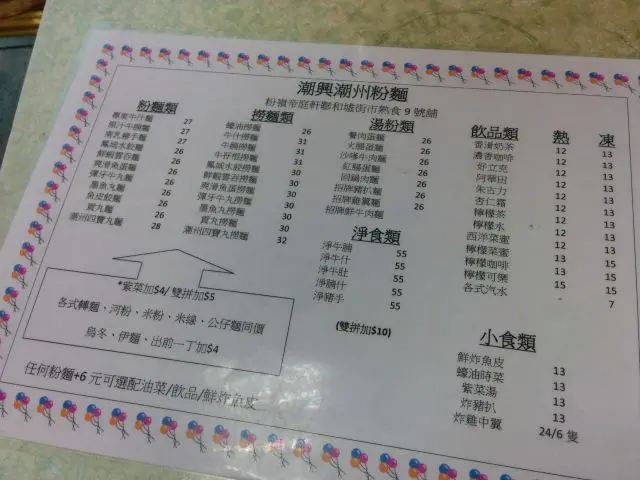 潮興潮州粉麵
粉嶺帝庭軒聯和墟街市熟食9號舖
粉麵類
牛什麵 27
27
南乳豬手麵 27
鳳城水餃麵 26
鮮蝦雲吞麵 26
爽滑魚蛋麵 26
彈牙牛丸麵 26
墨魚丸麵 26
魚皮餃麵 26
貢丸麵 26
潮州四寶丸麵 28
撈麵類
蠔油撈麵 26
牛什撈麵 31
牛腩撈麵 31
牛孖筋撈麵 31
鳳城水餃撈麵 30
鮮蝦雲吞撈麵 30
爽滑魚蛋撈麵 30
彈牙牛丸撈麵 30
墨魚丸撈麵 30
貢丸撈麵 30
潮州四寶丸撈麵 32
湯粉類
餐肉蛋麵 26
火腿蛋麵 26
沙嗲牛肉麵 26
紅腸蛋麵 26
回鍋肉麵 26
招牌豬扒麵 26
招牌雞翼麵 26
招牌鮮牛肉麵
淨食類
淨牛腩 55
淨牛什 55
淨牛肚 55
淨腩什 55
淨豬手 55
(雙拼加$10)
飲品類 熱 凍
香滑奶茶 12 13
濃香咖啡 12 13
好立克 12 13
阿華田 12 13
朱古力 12 13
杏仁霜 12 13
檸檬茶 12 13
檸檬水 12 13
西洋菜蜜 12 13
檸檬菜蜜 13 15
檸檬咖啡 13 15
檸檬可樂 15 15
各式汽水 7
小食類
鮮炸魚皮 13
蠔油時菜 13
紫菜湯 13
炸豬扒 13
炸雞中翼 24/6 隻
*紫菜加$4/ 雙拼加$5
各式轉麵、河粉、米粉、米線、公仔麵同價
烏冬、伊麵、出前一丁加$4
任何粉麵+6 元可選配油菜/飲品/鮮炸魚皮